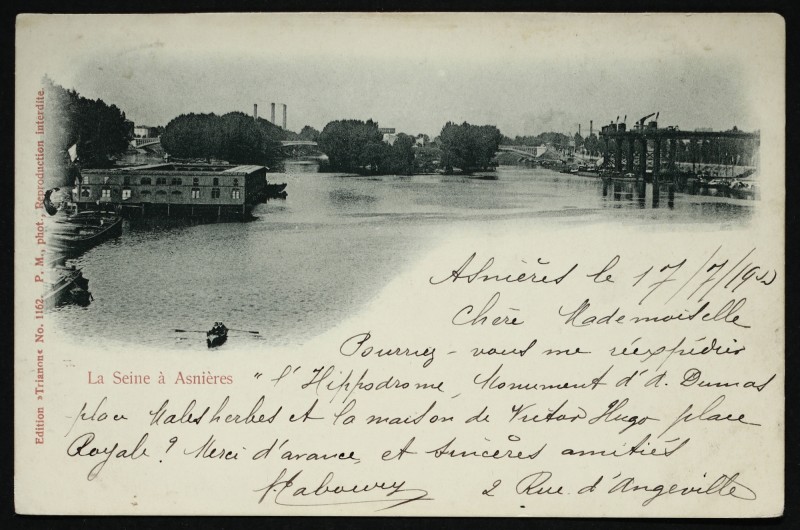 Edition »Trianon« No. 1162. P. M., phot. Reproduction interdite.
La Seine à Asnières
Asnières le 17/7/19
Chère Mademoiselle
Pourriez-vous me réexpédier
"l'Hippodrome, Monument d'A. Dumas
place Malesherbes et la maison de Victor Hugo place
Royale? Merci d'avance, et sincères amitiés
2 Rue d'Angeville